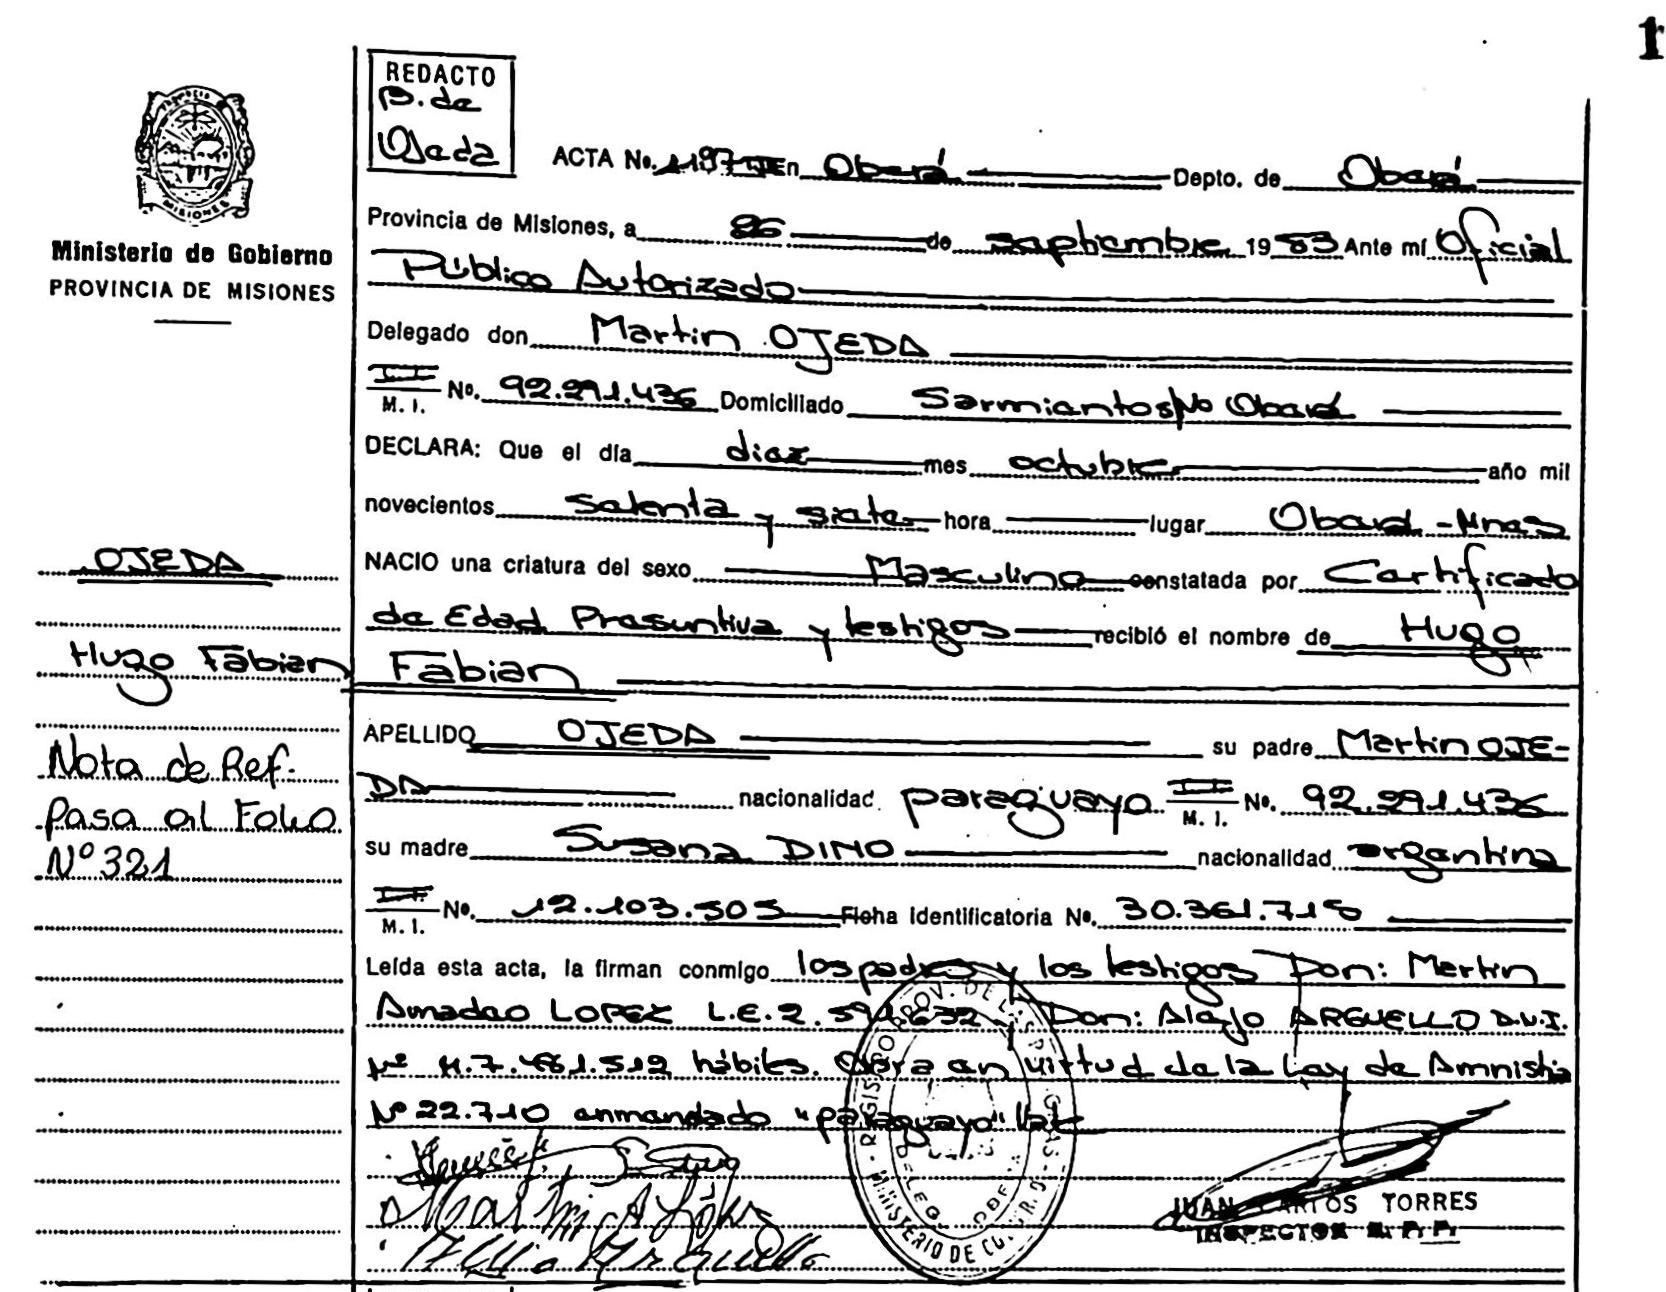 1
REDACTO
B. de
Ojeda
ACTA No. 1197 En Oberá Depto. de Oberá
MISIONES
Ministerio de Gobierno
PROVINCIA DE MISIONES
Provincia de Misiones, a 26 de septiembre 1983 Ante mí Oficial
Público Autorizado
Delegado don Martin OJEDA
M. I. No. 92.291.436 Domiciliado Sarmiento s/No Oberá
DECLARA: Que el día diez mes octubre año mil
novecientos setenta y siete hora lugar Oberá - Mnes
OJEDA
NACIO una criatura del sexo Masculino constatada por Certificado
de Edad Presuntiva y testigos recibió el nombre de Hugo
Hugo Fabian
Fabian
APELLIDO OJEDA su padre Martin OJE-
Nota de Ref.
DA nacionalidad. paraguayo M. I. No. 92.291.436
Pasa al Folio
su madre Susana DINO nacionalidad argentina
Nº 321
M. I. No. 12.103.505 Ficha Identificatoria No. 30.361.715
Leída esta acta, la firman conmigo los padres y los testigos Don: Martin
Amadeo LOPEZ L.E. 2.591.632 y Don: Alejo ARGUELLO D.N.I.
Nº M.7.461.512 hábiles. Obra en virtud de la Ley de Amnistia
Nº 22.710 enmendado "paraguayo" Vale
JUAN CARLOS TORRES
INSPECTOR